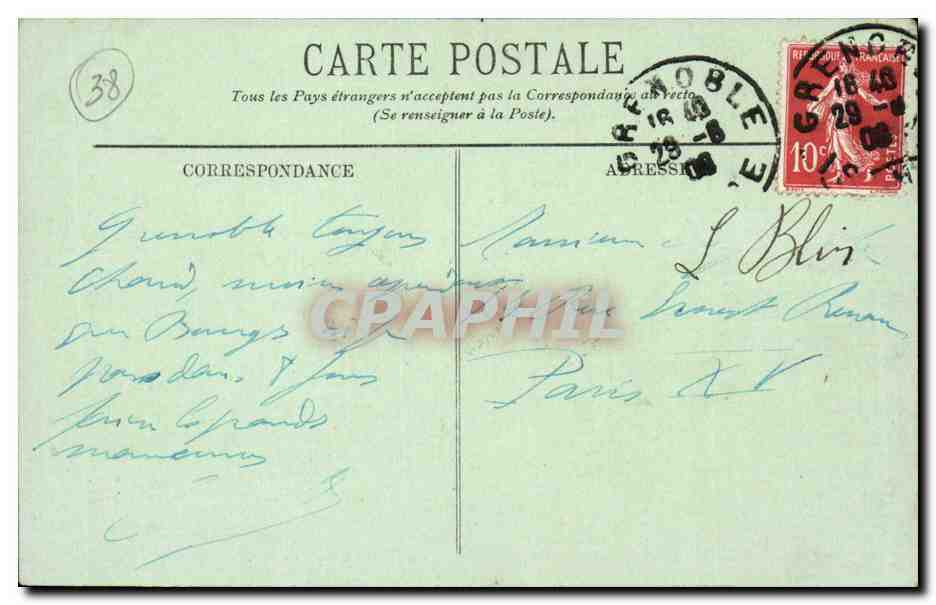 38
CARTE POSTALE
Tous les Pays étrangers n'acceptent pas la Correspondance au recto
(Se renseigner à la Poste).
GRENOBLE
16 40
29 -8
08
GRENOBLE
16 40
29 -8
08
REPUBLIQUE FRANÇAISE
10c
POSTES
CORRESPONDANCE
ADRESSE
Grenoble toujours
chaud, moins
que Bourges
pars dans 8 jours
faire les grands
manoeuvres
Monsieur
L Blin
Rue Ernest Renan
Paris XV
CPAPHIL